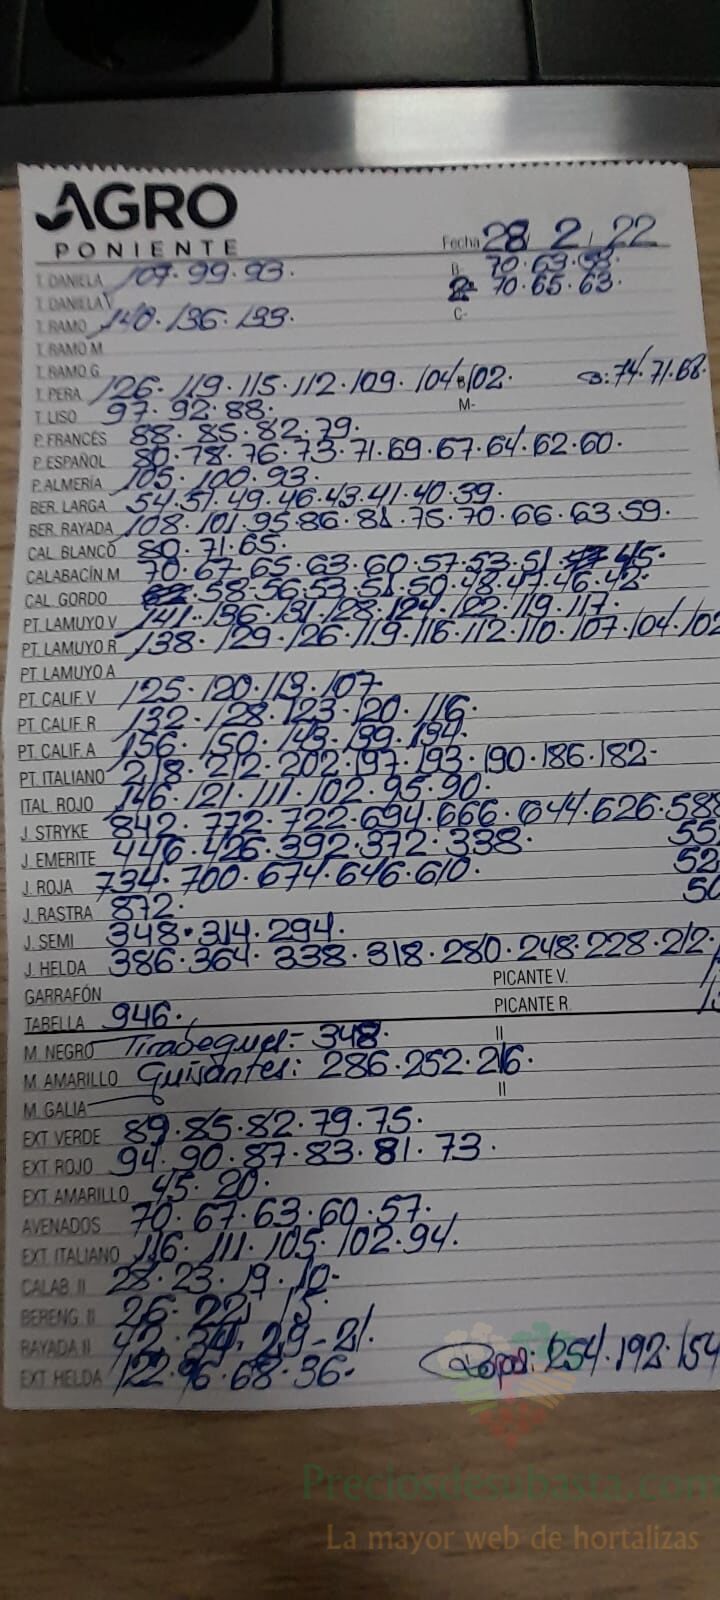 AGRO
PONIENTE
Fecha 28 2 / 22
T. DANIELA 107. 99. 93. B- 70. 63. 58.
T. DANIELA V 2- 70. 65. 63.
T. RAMO 140. 136. 133. C-
T. RAMO M
T. RAMO G
T. PERA 126. 119. 115. 112. 109. 104. 102. B: 74. 71. 68.
T. LISO 97. 92. 88. M-
P. FRANCÉS 88. 85. 82. 79.
P. ESPAÑOL 80. 78. 76. 73. 71. 69. 67. 64. 62. 60.
P. ALMERÍA 105. 100. 93.
BER. LARGA 54. 51. 49. 46. 43. 41. 40. 39.
BER. RAYADA 108. 101. 95. 86. 81. 75. 70. 66. 63. 59.
CAL. BLANCO 80. 71. 65.
CALABACÍN M 70. 67. 65. 63. 60. 57. 53. 51. 45.
CAL. GORDO 58. 56. 53. 51. 50. 48. 47. 46. 42.
PT. LAMUYO V 141. 136. 131. 128. 124. 122. 119. 117.
PT. LAMUYO R 138. 129. 126. 119. 116. 112. 110. 107. 104. 102
PT. LAMUYO A
PT. CALIF. V 125. 120. 113. 107
PT. CALIF. R 132. 128. 123. 120. 116.
PT. CALIF. A 156. 150. 143. 139. 134.
PT. ITALIANO 218. 212. 202. 197. 193. 190. 186. 182.
ITAL. ROJO 146. 121. 111. 102. 95. 90.
J. STRYKE 842. 772. 722. 694. 666. 644. 626. 588
J. EMERITE 446. 426. 392. 372. 338. 55
J. ROJA 734. 700. 674. 646. 610. 52
J. RASTRA 872. 50
J. SEMI 348. 314. 294.
J. HELDA 386. 364. 338. 318. 280. 248. 228. 212.
GARRAFÓN PICANTE V.
TABELLA 946. PICANTE R.
M. NEGRO Tirabeques:- 348. II
M. AMARILLO Guisantes: 286. 252. 216. II
M. GALIA
EXT. VERDE 89. 85. 82. 79. 75.
EXT. ROJO 94. 90. 87. 83. 81. 73.
EXT. AMARILLO 45. 20.
AVENADOS 70. 67. 63. 60. 57.
EXT. ITALIANO 116. 111. 105. 102. 94.
CALAB. II 28. 23. 19. 10.
BERENG. II 26. 22. 15.
RAYADA II 42. 34. 29 - 21.
EXT. HELDA 122. 96. 68. 36. 254. 192. 154
Preciosdesubasta.com
La mayor web de hortalizas